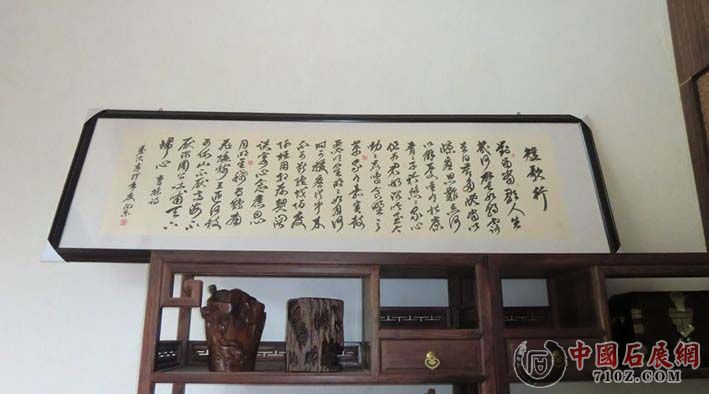 短歌行
對酒當歌人生
幾何譬如朝露
去日苦多慨當以
慷憂思難忘何
以解憂唯有杜康
青青子衿悠悠我心
但為君故沉吟至今
呦呦鹿鳴食野之
苹我有嘉賓鼓
瑟吹笙明明如月何
時可掇憂從中來
不可斷絕越陌度
阡枉用相存契闊
談讌心念舊恩
月明星稀烏鵲南
飛繞樹三匝何枝
可依山不厭高海不
厭深周公吐哺天下
歸心 曹操詩
中國石展網
710Z.COM